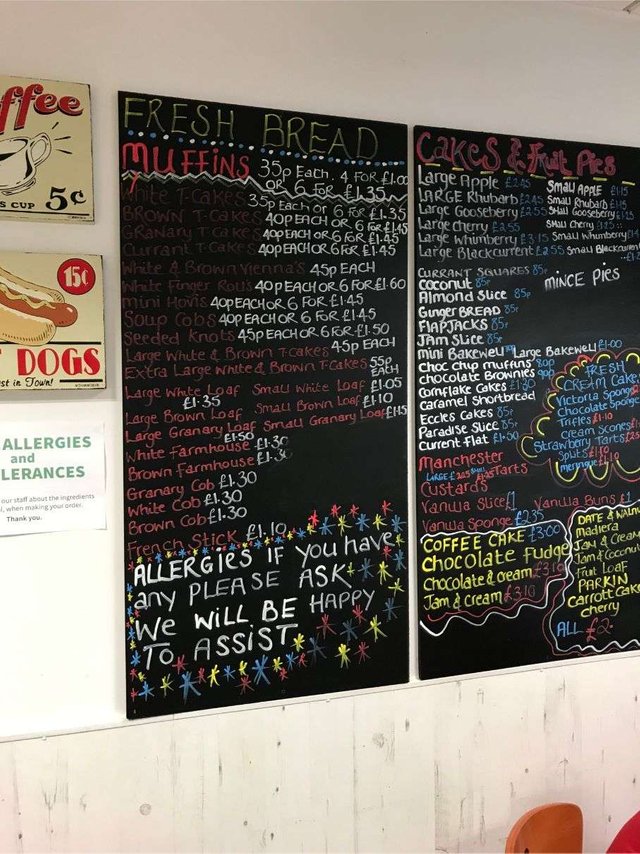 ffee
CUP 5¢
15¢
DOGS
ALLERGIES
and
LERANCES
our staff about the ingredients
when making your order.
Thank you.
FRESH BREAD
MUFFINS 35p Each. 4 FOR £1.00
OR 6 FOR £1.35
White T-CAKES 35p Each OR 6 FOR £1.35
BROWN T-CAKES 40p EACH OR 6 FOR £1.45
GRANARY T-CAKES 40p EACH OR 6 FOR £1.45
Currant T-CAKES 40p EACH OR 6 FOR £1.45
White & Brown Vienna's 45p EACH
White Finger Rolls 40p EACH OR 6 FOR £1.60
mini Hovis 40p EACH OR 6 FOR £1.45
Soup Cobs 40p EACH OR 6 FOR £1.45
Seeded Knots 45p EACH OR 6 FOR £1.50
Large White & Brown T-cakes 45p EACH
Extra Large White & Brown T-cakes 55p EACH
Large White Loaf £1.35 Small White Loaf £1.05
Large Brown Loaf Small Brown Loaf £1.10
Large Granary Loaf £1.50 Small Granary Loaf £1.15
White Farmhouse £1.30
Brown Farmhouse £1.30
Granary Cob £1.30
White Cob £1.30
Brown Cob £1.30
French Stick £1.10
ALLERGIES IF You have
any PLEASE ASK
We WILL BE HAPPY
TO ASSIST
CaKES & Fruit Pies
Large Apple £2.45 SMALL APPLE £1.15
LARGE Rhubarb £2.45 Small Rhubarb £1.15
Large Gooseberry £2.55 SMall Gooseberry £1.25
Large cherry £2.55 SMALL CHERRY
Large Whumberry £3.15 Small Whumberry
Large Blackcurrent £2.55 Small Blackcurrent
CURRANT SQUARES 85p
Coconut 85p MINCE PIES
Almond Slice 85p
Ginger BREAD 85p
FlapJACKS 85p
JAM Slice 85p
mini Bakewell Large Bakewell £1.00
choc chip muffins 90p
chocolate Brownies 90p
Cornflake Cakes £1.30
caramel Shortbread
Eccles Cakes 85p
Paradise Slice 85p
Current Flat £1.50
FRESH
CREAM Cakes
Victoria Sponge
Chocolate Sponge
Trifles £1.10
cream Scones
Strawberry Tarts
Splits £1.10
meringue £1.10
Manchester
Tarts
Custards
Vanilla Slice £1 Vanilla Buns £1
Vanilla Sponge £2.35
COFFEE CAKE £3.00
chocolate fudge
Chocolate & cream £3.10
Jam & Cream £3.10
DATE & Walnut
madiera
Jam & Cream
Jam & Coconut
Fruit Loaf
PARKIN
Carrott Cake
cherry
ALL £2